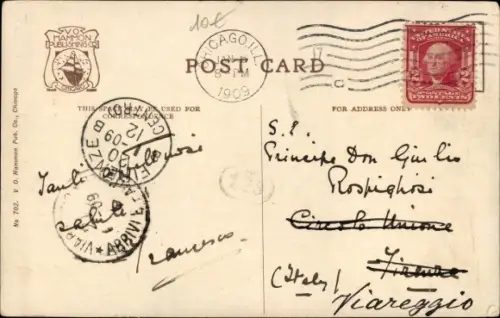 10€
V.O. HAMMON
PUBLISHING CO.
CHICAGO
CHICAGO, ILL.
8 PM
1909
POST CARD
THIS SPACE MAY BE USED FOR
CORRESPONDENCE
FOR ADDRESS ONLY
2 2
TWO CENTS
FIRENZE
12
09
ARRIVI
Tanti
saluti
Francesco
S. E.
Principe Don Giulio
Rospigliosi
Circolo Unione
Firenze
(Italy)
Viareggio
No 702. V. O. Hammon Pub. Co., Chicago